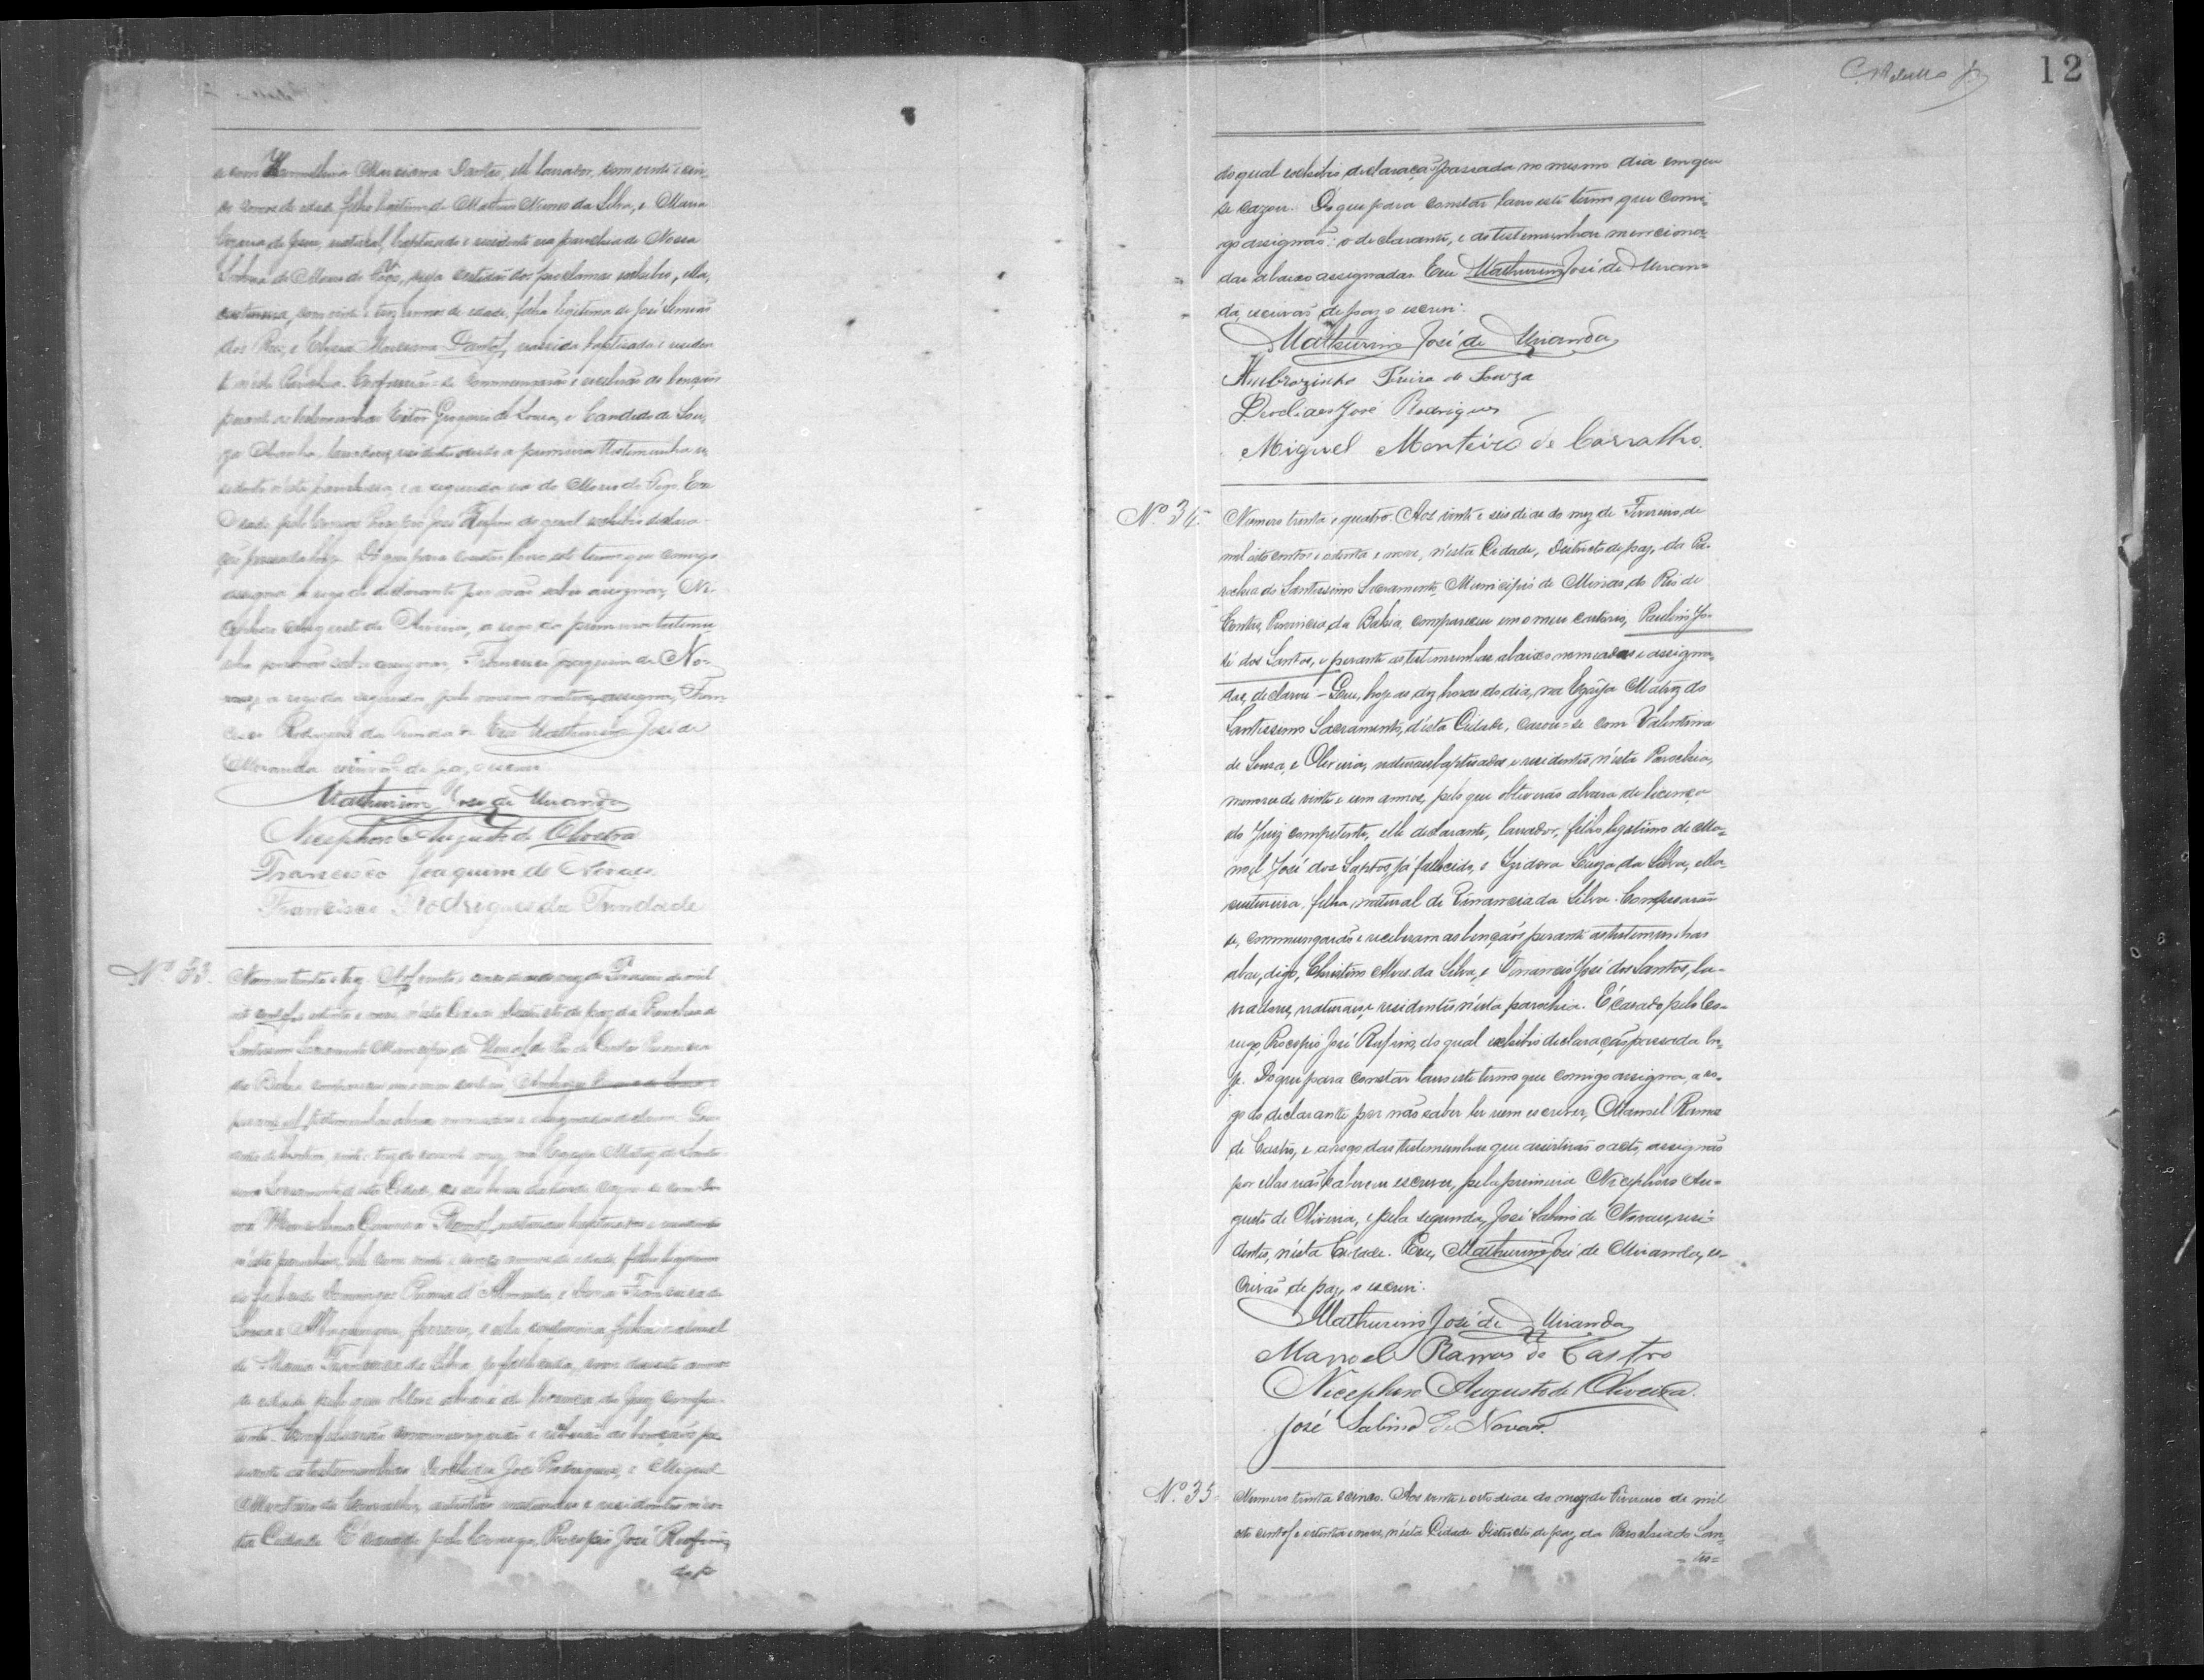 a com Marciana Dantas, elle lavrador, com vinte e cin-
co annos de edade, filho legitimo de Matheus Nunes da Silva, e Maria
de Jesus, natural, baptisado e residente na parochia de Nossa
Senhora do Morro do Fogo, cuja certidão dos proclamas exhibio, ella,
costureira, com vinte e trez annos de edade, filha legitima de José
dos Reis, e Marciana Dantas, nascida baptisada e residen-
te n'esta Parochia. Confessarão-se commungarão e receberão as bençãos
perante as testemunhas Gregorio de Souza, e Candido de Sou-
za lavradores, residentes sendo a primeira testemunha re-
sidente n'esta parochia, e a segunda na do Morro do Fogo. E
casado pelo Conego Procopio José Rufino do qual exhibio declara-
ção passada hoje. Do que para constar lavro este termo que comigo
assigna a rogo do declarante por não saber assignar, Ni-
cephoro Augusto de Oliveira, a rogo da primeira testemu-
nha por não saber assignar, Francisco Joaquim de No-
vaes, e a rogo da segunda pelo mesmo motivo, assigna, Fran-
cisco Rodrigues da Trindade. Eu Mathurino José de
Miranda escrivão de paz, o escrevi.
Mathurino José de Miranda
Nicephoro Augusto de Oliveira
Francisco Joaquim de Novaes
Francisco Rodrigues da Trindade
Nº 33.
Numero trinta e trez. Aos vinte e dias do mez de Fevereiro de mil
oito centos e oitenta e nove, n'esta Cidade Districto de paz da Parochia do
Santissimo Sacramento Municipio de Minas do Rio de Contas Provincia
da Bahia compareceu em o meu cartorio, de Souza e
perante as testemunhas abaixo nomeadas e assignadas declarou Que
vinte e trez do corrente mez, na Egreja Matriz do Santis-
simo Sacramento d'esta Cidade, as seis horas da tarde cazou-se com
baptisados e residentes
n'esta parochia, elle com vinte e annos de edade, filho legitimo
de Domingos d'Almeida, e Dona Francisca de
Souza e ferreiro, e ella costureira filha natural
de Maria Francisca da Silva ja fallecida, com dezoito annos
de edade pelo que obteve alvará de licença do Juiz compe-
tente. Confessarão commungarão e receberão as bençãos pe-
rante as testemunhas José Rodrigues, e Miguel
Monteiro de Carvalho, artistas naturaes e residentes n'es-
ta Cidade. É cazado pelo Conego, Procopio José Rufino,
do q
C. Rebello Jr
12
do qual exhibio declaração passada no mesmo dia em que
se cazou. Do que para constar lavro este termo que comi-
go assignão: o declarante, e as testemunhas menciona-
das abaixo assignadas. Eu Mathurino José de Miran-
da, escrivão de paz o escrevi.
Mathurino José de Miranda
Ambrozinho Pereira de Souza
José Rodrigues
Miguel Monteiro de Carvalho.
Nº 34.
Numero trinta e quatro. Aos vinte e seis dias do mez de Fevereiro, de
mil oito centos e oitenta e nove, n'esta Cidade, Districto de paz, da Pa-
rochia do Santissimo Sacramento, Municipio de Minas, do Rio de
Contas, Provincia, da Bahia, compareceu em o meu cartorio, Paulino Jo-
sé dos Santos, e perante as testemunhas abaixo nomeadas e assigna-
das, declarou - Que, hoje as dez horas do dia, na Egreja Matriz do
Santissimo Sacramento, d'esta Cidade, casou-se com Valentina
de Souza, e Oliveira, naturaes baptisados e residentes, n'esta Parochia,
menores de vinte e um annos, pelo que obtiverão alvara de licença
do Juiz competente, elle declarante, lavrador, filho legitimo de Ma-
noel José dos Santos já fallecido, e Izidora da Silva, ella
costureira, filha natural de Venancia da Silva. Confessarão
se, commungarão e receberam as bençãos perante as testemunhas
abai, digo, Christino Alves da Silva, e Venancio José dos Santos, la-
vradores, naturaes, e residentes n'esta parochia. É casado pelo Co-
nego, Procopio José Rufino, do qual exhibio declaração passada ho-
je. Do que para constar lavro este termo que comigo assigna, a ro-
go do declarante por não saber ler nem escrever, Manoel Ramos
de Castro, e a rogo das testemunhas que assistirão o acto, assignão
por ellas não saberem escrever, pela primeira Nicephoro Au-
gusto de Oliveira, e pela segunda, José Sabino de Novaes, resi-
dentes, n'esta Cidade. Eu, Mathurino José de Miranda, es-
crivão de paz, o escrevi.
Mathurino José de Miranda
Manoel Ramos de Castro
Nicephoro Augusto de Oliveira.
José Sabino de Novaes.
Nº 35
Numero trinta e cinco. Aos vinte e oito dias do mez de Fevereiro de mil
oito centos e oitenta e nove, n'esta Cidade Districto de paz da Parochia do San-
tis=